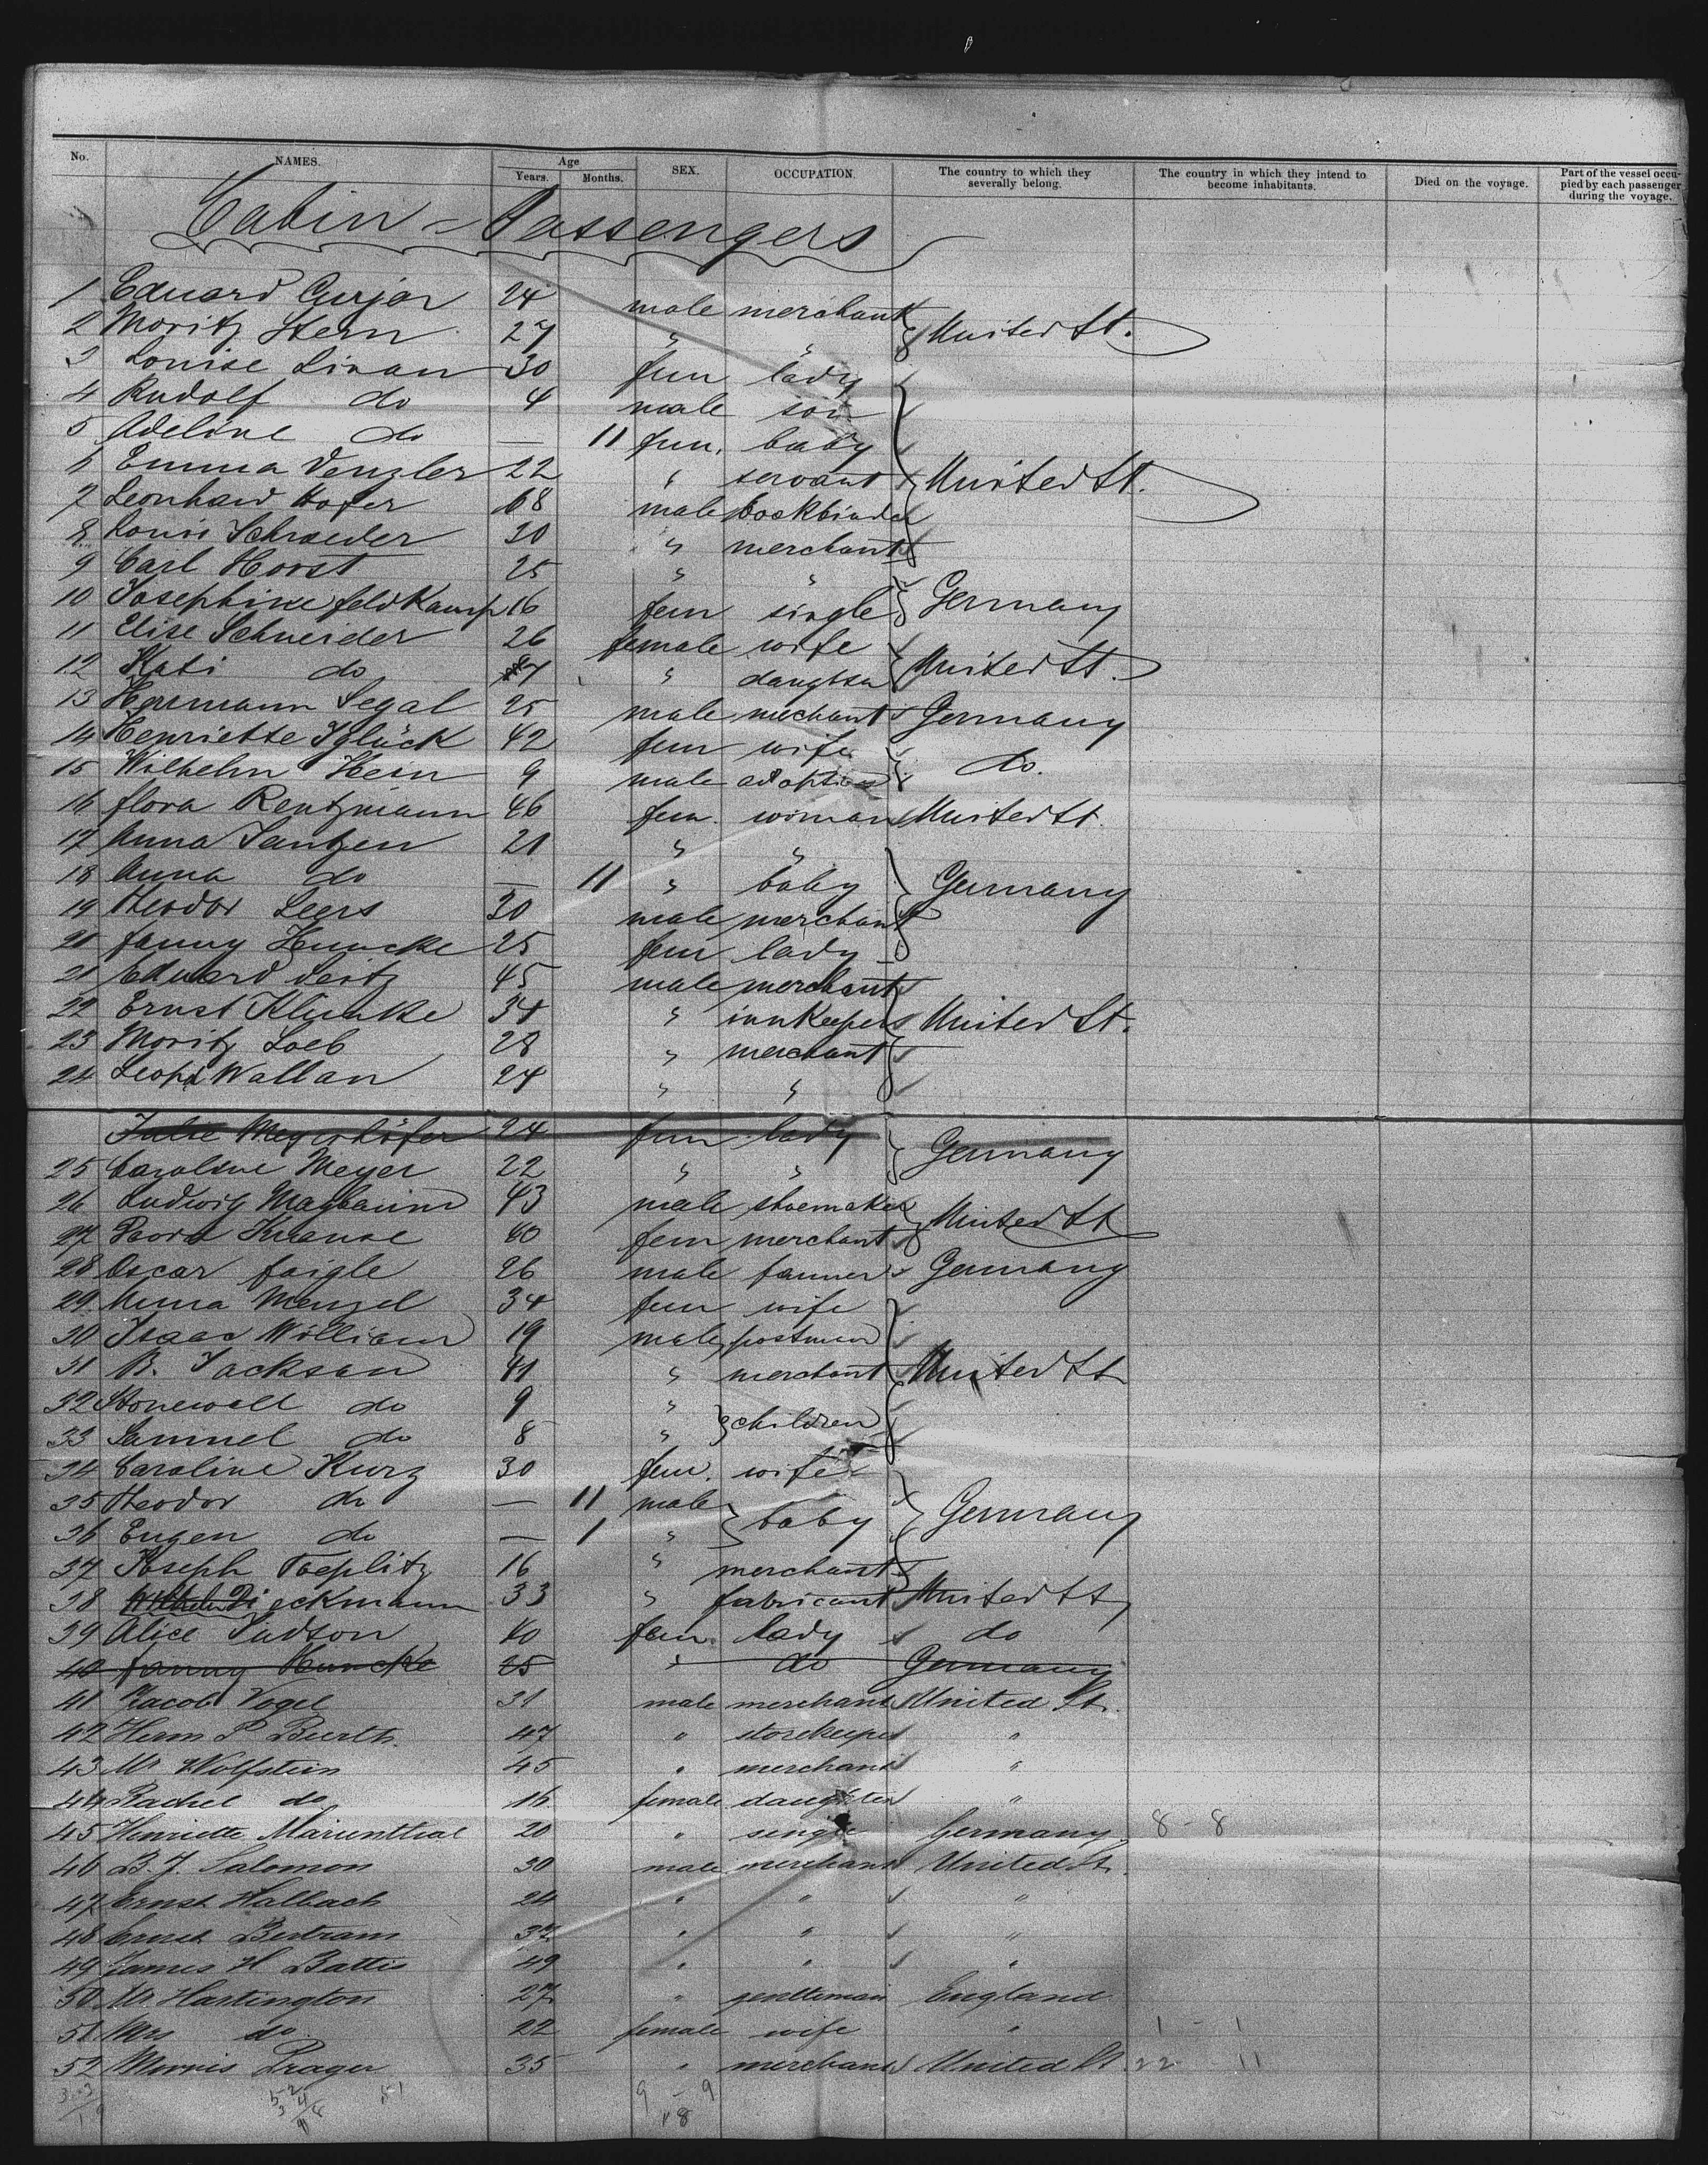 No. NAMES. Age Years. Months. SEX. OCCUPATION. The country to which they severally belong. The country in which they intend to become inhabitants. Died on the voyage. Part of the vessel occupied by each passenger during the voyage.
Cabin-Passengers
1 Eduard 24 male merchant
2 Moritz Stern 27 " " United St.
3 Louise 30 fem lady
4 Rudolf do 4 male son
5 Adeline do — 11 fem. baby
6 Emma Venzler 22 " servant United St.
7 Leonhard Hofer 68 male bookbinder
8 Louis Schroeder 30 " merchant
9 Carl Horst 25 " "
10 Josephine Feldkamp 16 fem single Germany
11 Elise Schneider 26 female wife
12 Kati do " daughter United St.
13 Hermann Segal 25 male merchant Germany
14 Henriette Iglück 42 fem wife do.
15 Wilhelm Hein 9 male
16 Flora Rentzmann 46 fem. woman United St.
17 Anna Jantzen 21 " "
18 Anna do — 11 " baby Germany
19 Theodor Leers 30 male merchant
20 Fanny Huncke 25 fem lady
21 Eduard Seitz 45 male merchant
22 Ernst Klunke 34 " innkeeper United St.
23 Moritz Loeb 28 " merchant
24 Leopd Wallan 24 " "
Julie Meyerhöfer 24 fem lady Germany
25 Caroline Meyer 22 " "
26 Ludwig Maybaum 43 male shoemaker United St.
27 Krause 40 fem merchant
28 Oscar Faigle 26 male farmer Germany
29 Anna Menzel 34 fem wife
30 Isaac William 19 male postman
31 B. Jackson 41 " merchant United St.
32 Stonewall do 9 " children
33 Samuel do 8 "
34 Caroline Kurz 30 fem. wife
35 Theodor do — 11 male baby Germany
36 Eugen do — 1 "
37 Joseph Toeplitz 16 " merchant
38 eckmann 33 " fabricant United St.
39 Alice Judson 40 fem. lady do
40 Fanny Huncke 25 " do Germany
41 Jacob Vogel 31 male merchant United St.
42 Herm P. 47 " storekeeper "
43 Mr Wolfstein 45 " merchant "
44 Rachel do 16 female daughter "
45 Henriette Marienthal 20 " single Germany 8 - 8
46 B. J. Salomon 30 male merchant United St.
47 Ernst Halbach 24 " " "
48 Ernst Bertram 37 " " "
49 James H Battis 49 " " "
50 Mr Hartington 27 " gentleman England
51 Mrs do 22 female wife " 1 - 1
52 Morris Prager 35 " merchant United St. 22 11
9 - 9